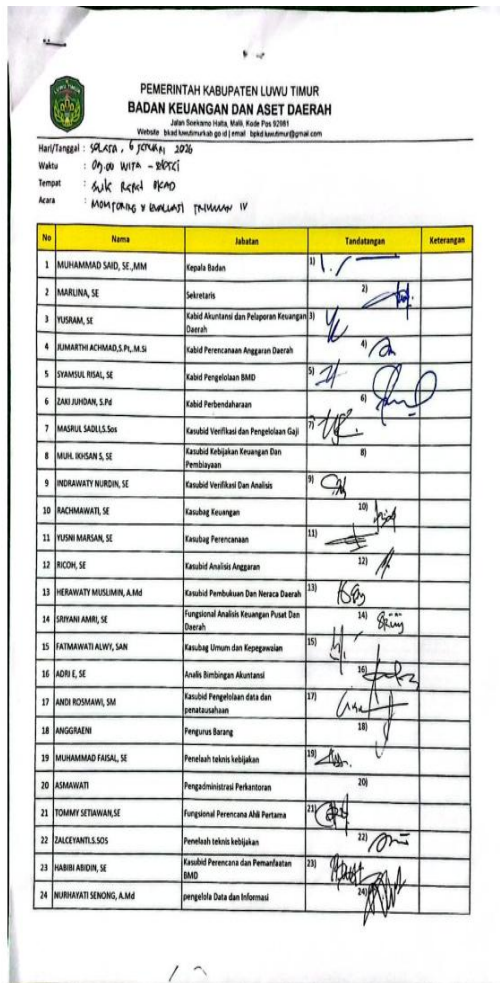 LUWU TIMUR
PEMERINTAH KABUPATEN LUWU TIMUR
BADAN KEUANGAN DAN ASET DAERAH
Jalan Soekarno Hatta, Malili, Kode Pos 92981
Website bkad.luwutimurkab.go.id | email bpkd.luwutimur@gmail.com
Hari/Tanggal : SELASA, 6 JANUARI 2026
Waktu : 09.00 WITA - SELESAI
Tempat : Rapat BKAD
Acara : MONITORING & EVALUASI TRIWULAN IV
No Nama Jabatan Tandatangan Keterangan
1 MUHAMMAD SAID, SE.,MM Kepala Badan 1)
2 MARLINA, SE Sekretaris 2)
3 YUSRAM, SE Kabid Akuntansi dan Pelaporan Keuangan Daerah 3)
4 JUMARTHI ACHMAD,S.Pt,.M.Si Kabid Perencanaan Anggaran Daerah 4)
5 SYAMSUL RISAL, SE Kabid Pengelolaan BMD 5)
6 ZAKI JUHDAN, S.Pd Kabid Perbendaharaan 6)
7 MASRUL SADLI,S.Sos Kasubid Verifikasi dan Pengelolaan Gaji 7)
8 MUH. IKHSAN S, SE Kasubid Kebijakan Keuangan Dan Pembiayaan 8)
9 INDRAWATY NURDIN, SE Kasubid Verifikasi Dan Analisis 9)
10 RACHMAWATI, SE Kasubag Keuangan 10)
11 YUSNI MARSAN, SE Kasubag Perencanaan 11)
12 RICOH, SE Kasubid Analisis Anggaran 12)
13 HERAWATY MUSLIMIN, A.Md Kasubid Pembukuan Dan Neraca Daerah 13)
14 SRIYANI AMRI, SE Fungsional Analisis Keuangan Pusat Dan Daerah 14)
15 FATMAWATI ALWY, SAN Kasubag Umum dan Kepegawaian 15)
16 ADRI E, SE Analis Bimbingan Akuntansi 16)
17 ANDI ROSMAWI, SM Kasubid Pengelolaan data dan penatausahaan 17)
18 ANGGRAENI Pengurus Barang 18)
19 MUHAMMAD FAISAL, SE Penelaah teknis kebijakan 19)
20 ASMAWATI Pengadministrasi Perkantoran 20)
21 TOMMY SETIAWAN,SE Fungsional Perencana Ahli Pertama 21)
22 ZALCEYANTI.S.SOS Penelaah teknis kebijakan 22)
23 HABIBI ABIDIN, SE Kasubid Perencana dan Pemanfaatan BMD 23)
24 NURHAYATI SENONG, A.Md pengelola Data dan Informasi 24)